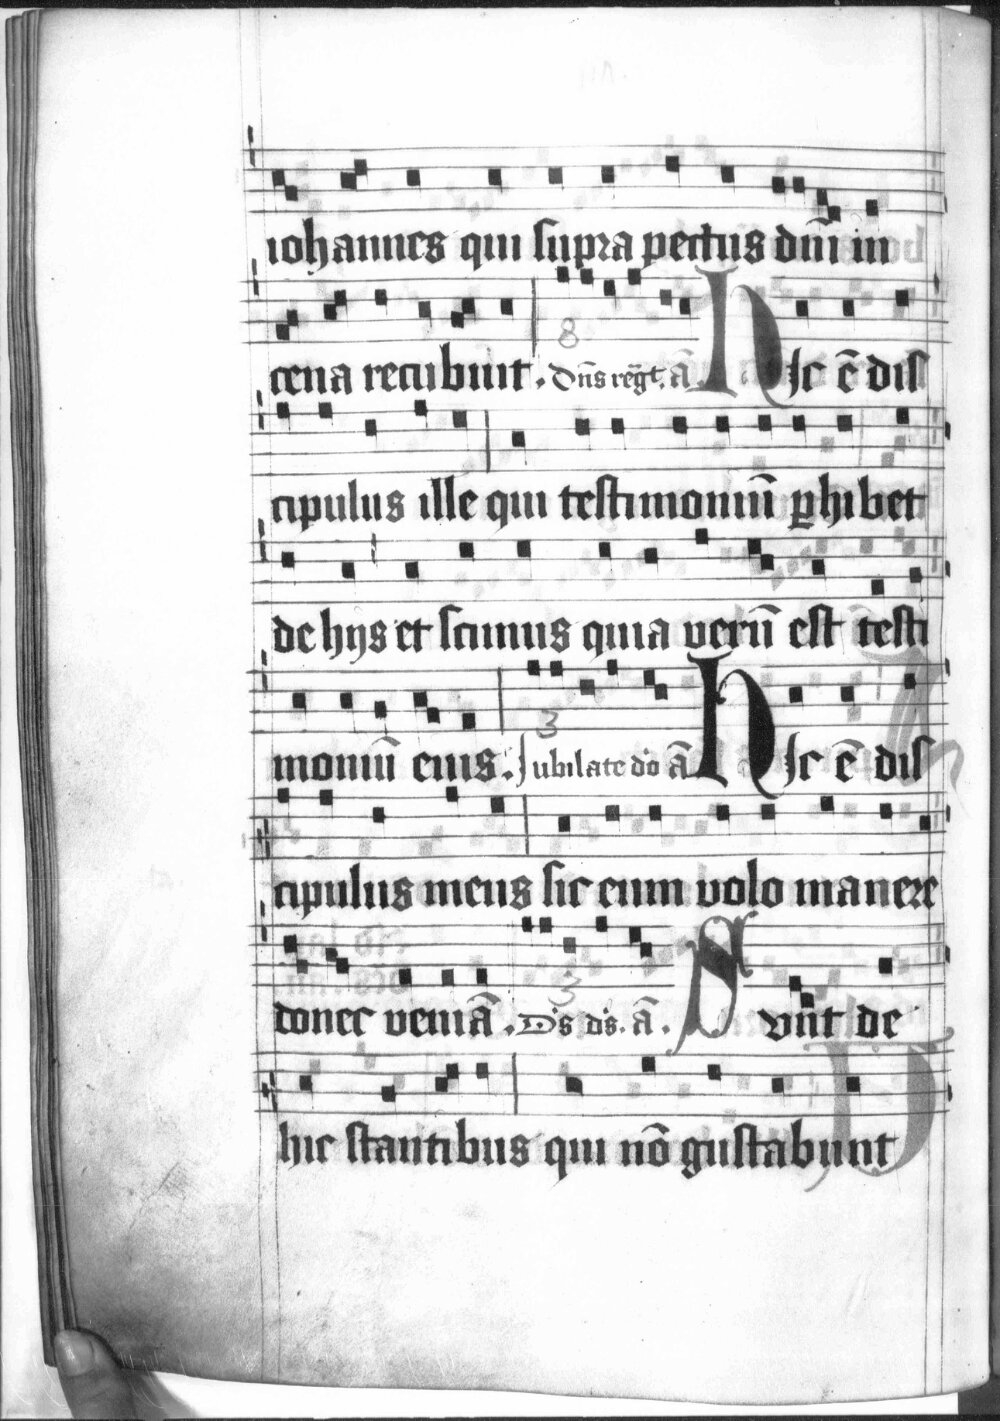 iohannes qui supra pectus dn̄i in
cena recubuit. Dn̄s reḡt. ā Hic ē dis
8
cipulus ille qui testimoniū ꝑhibet
de hijs et scimus quia verū est testi
moniū eius. Jubilate do ā Hic ē dis
3
cipulus meus sic eum volo manere
donec veniā. Ds ds. ā. Sunt de
3
hic stantibus qui nō gustabunt